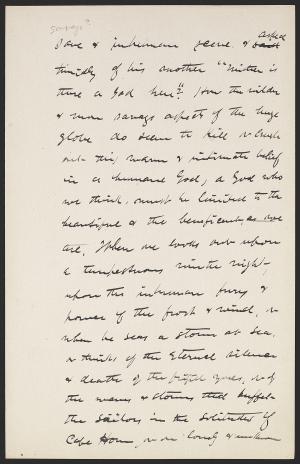 savage?
& inhuman scene & asked
timidly of his mother "Mother is
there a God here?". How the wilder
& more savage aspects of the huge
globe do seem to kill or crush
out this warm & intimate belief
in a humane God; a God who
we think, must be limited to the
beautiful & the beneficent, as we
are. When one looks out upon
a tempestuous winter night,
upon the inhuman fury &
power of the frost & wind, or
when he sees a storm at sea,
or thinks of the eternal silence
& death of the frigid zones, or of
the waves & storms that buffet
the sailors in the solitudes of
Cape Horn, or on lonely & unknown